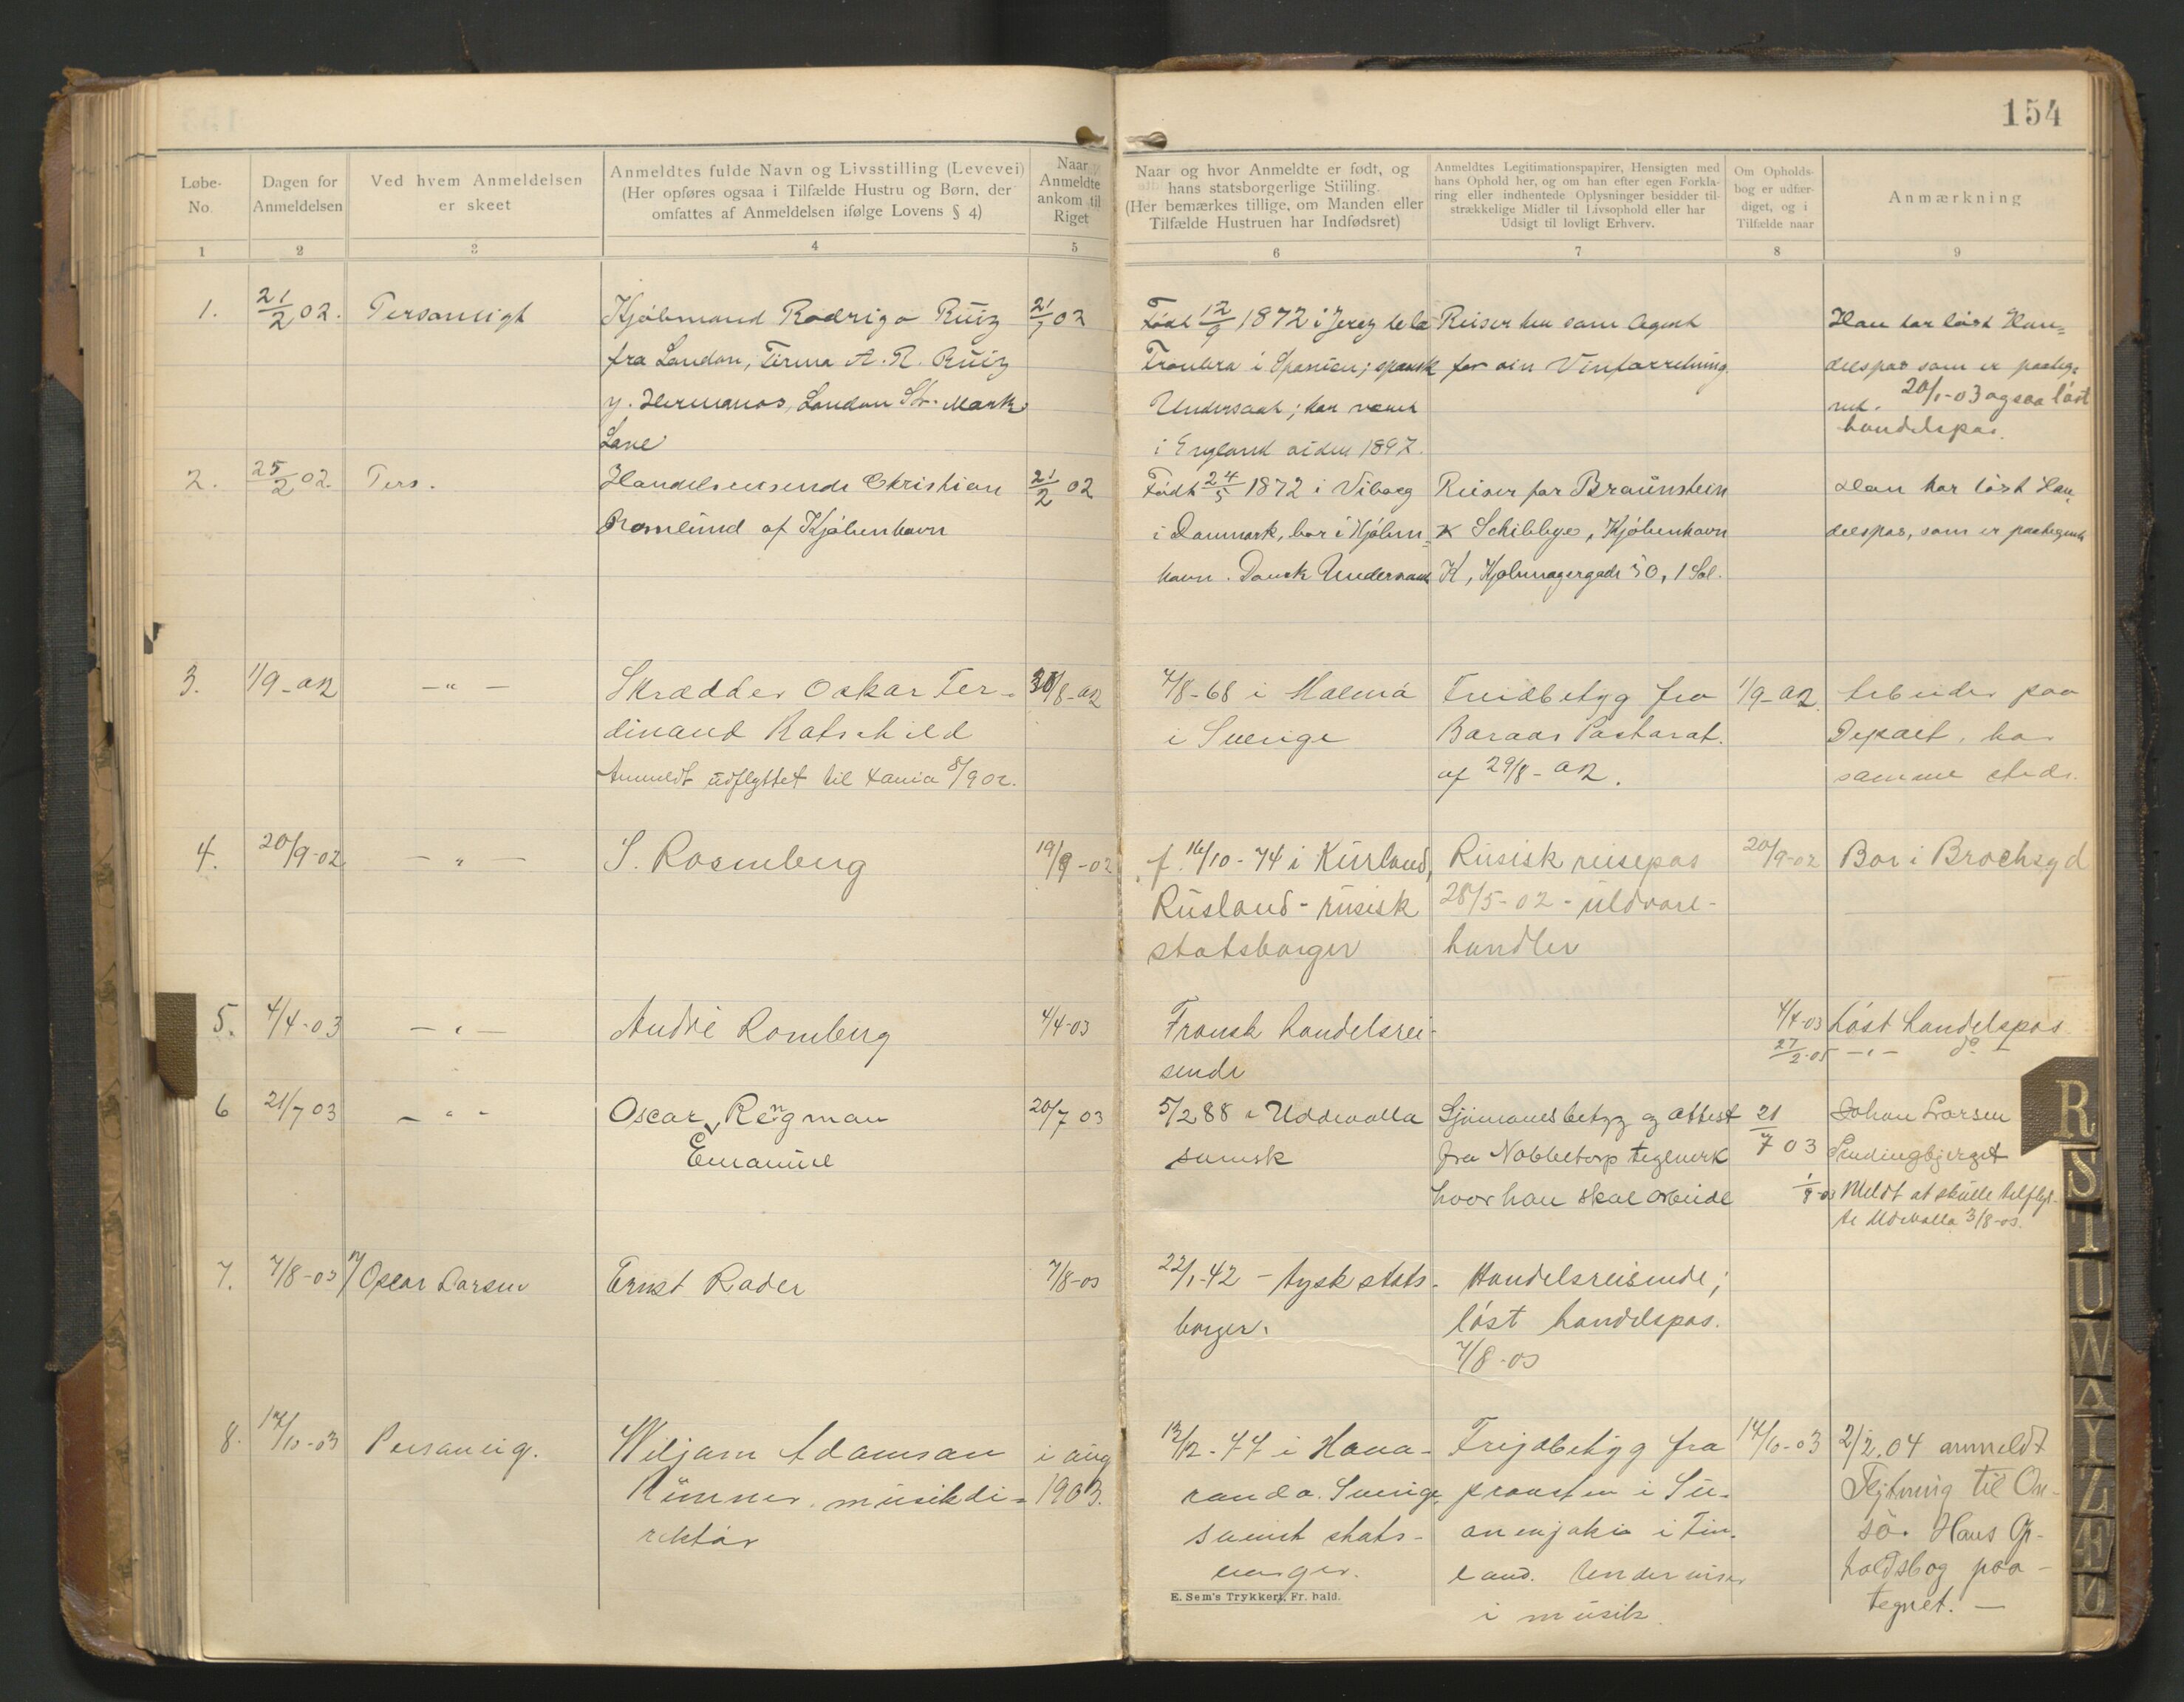 154
Løbe-
No.
Dagen for
Anmeldelsen
Ved hvem Anmeldelsen
er skeet
Anmeldtes fulde Navn og Livsstilling (Levevei)
(Her opføres ogsaa i Tilfælde Hustru og Børn, der
omfattes af Anmeldelsen ifølge Lovens § 4)
Naar
Anmeldte
ankom til
Riget
Naar og hvor Anmeldte er født, og
hans statsborgerlige Stilling.
(Her bemærkes tillige, om Manden eller
Tilfælde Hustruen har Indfødsret)
Anmeldtes Legitimationspapirer, Hensigten med
hans Ophold her, og om han efter egen Forkla-
ring eller indhentede Oplysninger besidder til-
strækkelige Midler til Livsophold eller har
Udsigt til lovligt Erhverv.
Om Opholds-
bog er udfær-
diget, og i
Tilfælde naar
Anmærkning
1 2 3 4 5 6 7 8 9
1.
21/2 02.
Personligt
Kjøbmand Rodrigo Ruiz
fra London, Firma A. R. Ruiz
y. Hermanos, London St. Mark
Lane
21/2 02
Født 12/9 1872 i Jerez de la
Frontera i Spanien; spansk
Undersaat; har været
i England siden 1897.
Reiser her som Agent
for sin Vinforretning.
Han har løst Han-
delspas som er paateg-
net. 20/1-03 ogsaa løst
handelspas.
2.
25/2 02.
Pers.
Handelsreisende Christian
Romlund af Kjøbenhavn
21/2 02
Født 24/5 1872 i Viborg
i Danmark, bor i Kjøben-
havn. Dansk Undersaat
Reiser for Braunstein
& Schibbye, Kjøbenhavn
K, Kjøbmagergade 50, 1 Sal.
Han har løst Han-
delspas, som er paategnet
3.
1/9-02
— " —
Skrædder Oskar Fer-
dinand Rotschild
Anmeldt udflyttet til Xania 8/9 02.
30/8-02
4/8-68 i Malmø
i Sverige
Freidbetyg fra
Boraas Pastorat.
af 29/8-02.
1/9-02
Arbeider paa
Depoet, bor
samme steds.
4.
20/9-02
— " —
S. Rosenberg
19/9-02
f. 16/10-74 i Kurland,
Rusland - rusisk
statsborger
Rusisk reisepas
28/5-02 - uldvare-
handler
20/9-02
Bor i Brochsgd
5.
4/4-03
— " —
André Romberg
4/4-03
Fransk handelsrei-
sende
4/4-03
løst handelspas
27/2-05 — " — do —
6
21/7 03
— " -
Oscar Rengman
Emanuel
20/7 03
5/2 88 i Uddevalla
svensk
Sjømansbetyg og attest
fra Nabbetorp teglverk
hvor han skal arbeide
21/7 03
Johan Larsen
Smedingbjerget
Meldt at skulle tilflyt-
te Udevalla 3/8-03.
7.
7/8-03
v/ Oscar Larsen
Ernst Rader
7/8-03
22/1-42 - tysk stats-
borger.
Handelsreisende;
løst handelspas.
7/8-03
8.
14/10-03
Personlig.
Wiljam Adamson
Rünner, musikdi-
rektør
i aug
1903.
13/12-77 i Hava-
randa. Sverige,
svensk stats-
borger.
Freidbetyg fra
prousten i Su-
onenjoki i Fin-
land. Underviser
i musik.
14/10-03
2/2.04 anmeldt
Flytning til On-
sö. Hans Op-
holdsbog paa-
tegnet. —
E. Sem's Trykkeri, Fr. hald.
R
S
T
U
W
X
Y
Z
Æ
Ø